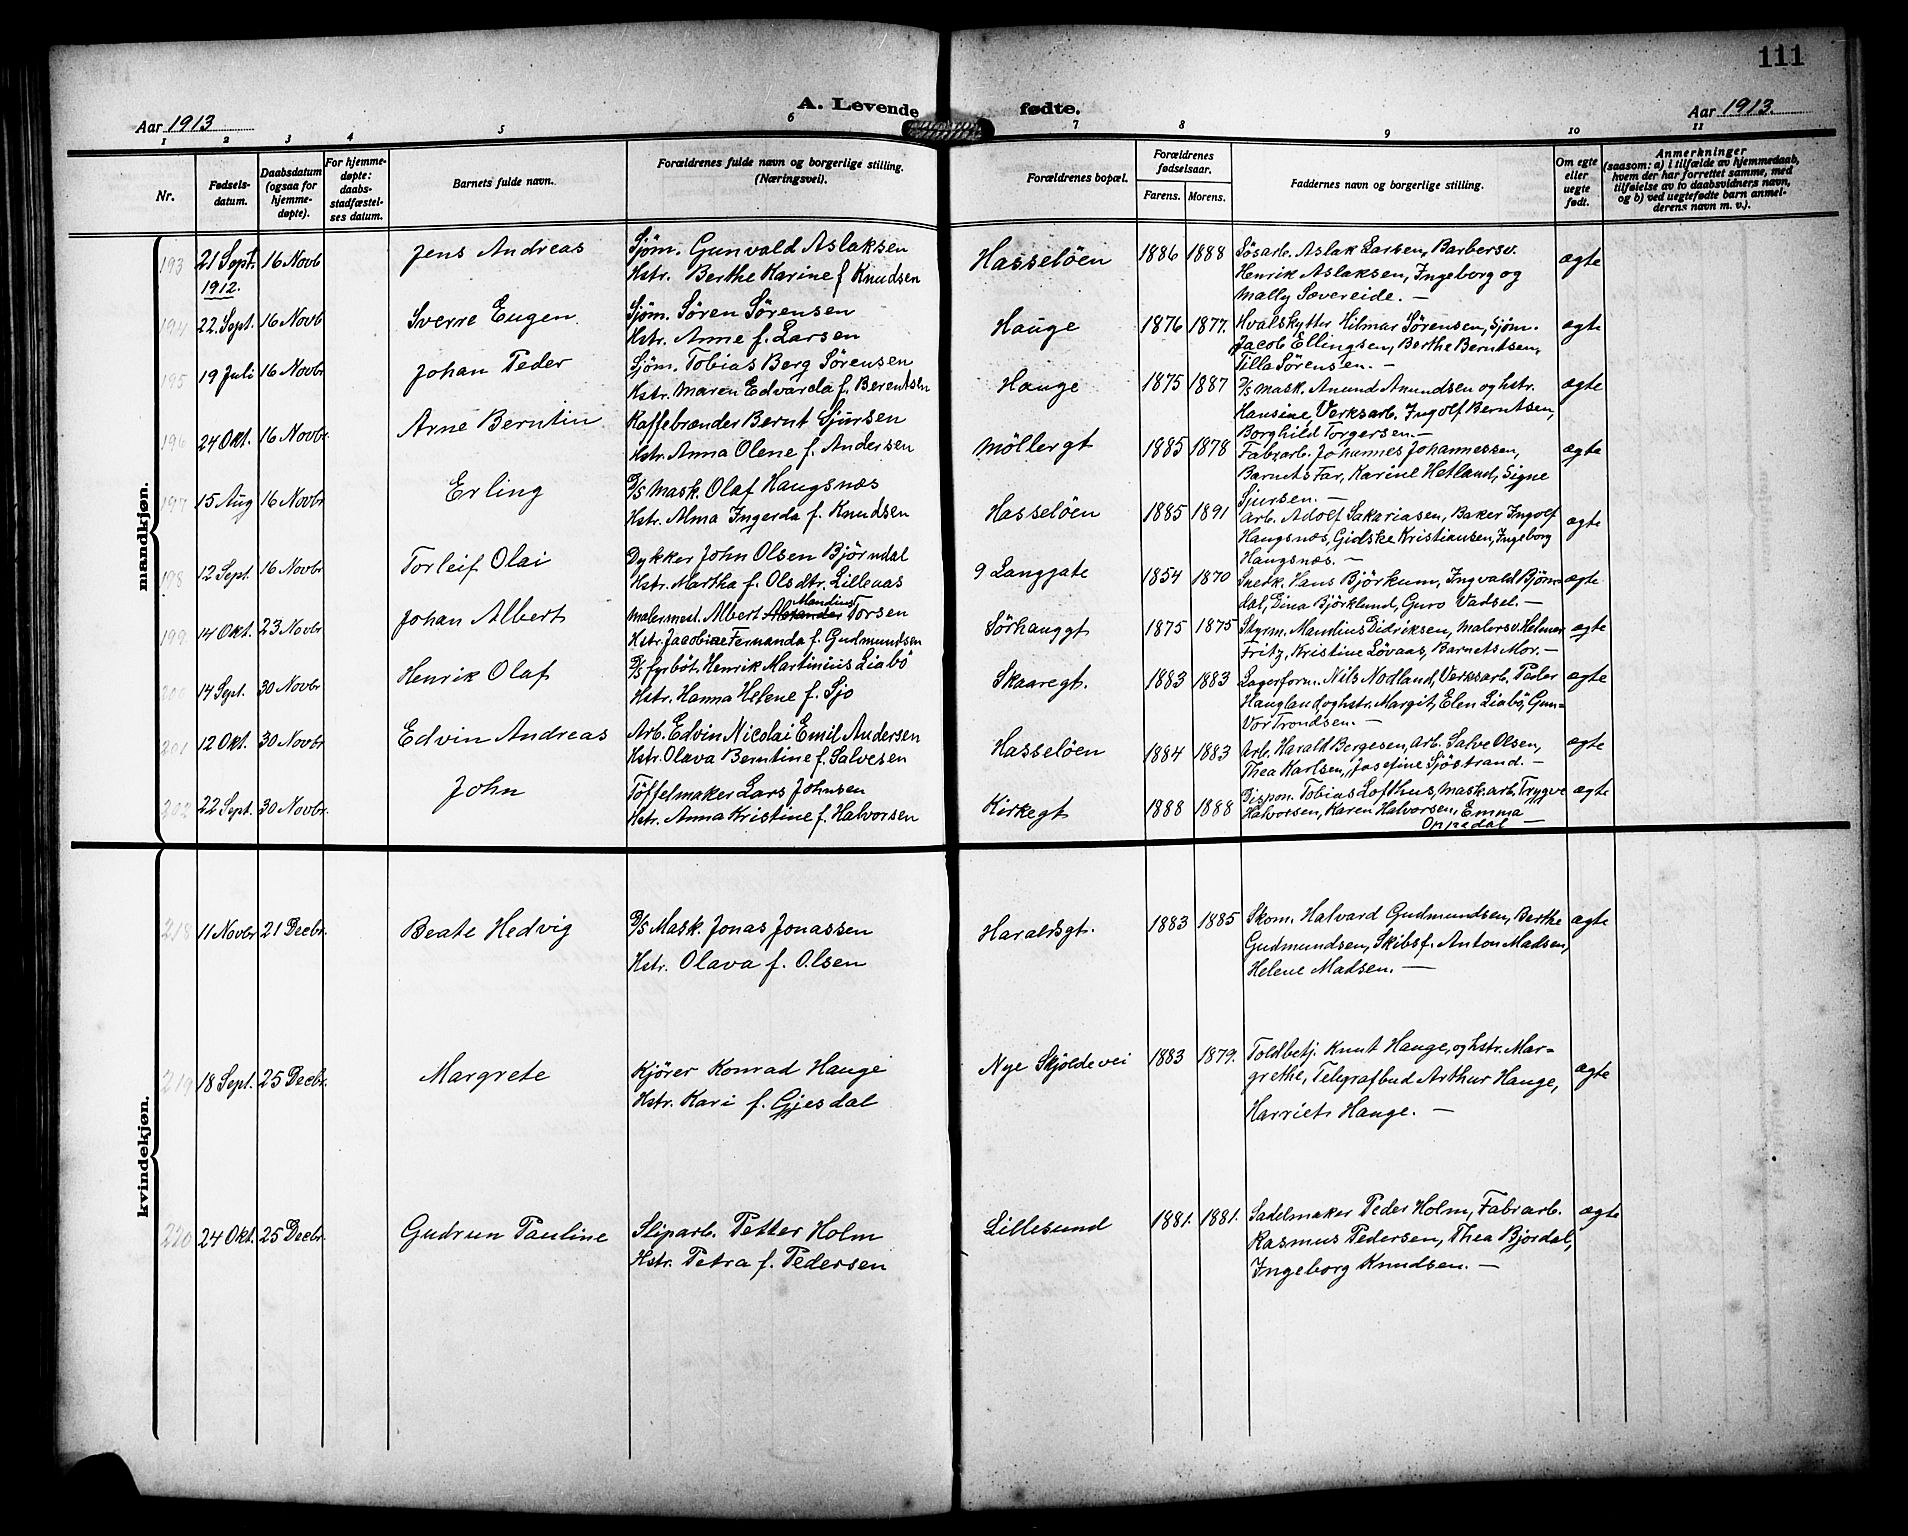 111
A. Levende fødte.
Aar 1913
Aar 1913.
1 2 3 4 5 6 7 8 9 10 11
Nr.
Fødsels-
datum.
Daabsdatum
(ogsaa for
hjemme-
døpte).
For hjemme-
døpte:
daabs-
stadfæstel-
ses datum.
Barnets fulde navn.
Forældrenes fulde navn og borgerlige stilling.
(Næringsvei).
Forældrenes bopæl.
Forældrenes
fødselsaar.
Farens. Morens.
Faddernes navn og borgerlige stilling.
Om egte
eller
uegte
født.
Anmerkninger
(saasom: a) i tilfælde av hjemmedaab,
hvem der har forrettet samme, med
tilføielse av to daabsvidners navn,
og b) ved uegtefødte barn anmel-
derens navn m. v.).
mandkjøn.
193 21 Sept. 16 Novb Jens Andreas Sjøm. Gunvald Aslaksen Hasseløen 1886 1888 Løsarb. Aslak Larsen, Barbersv. ægte
1912. Hstr. Berthe Karine f Knudsen Henrik Aslaksen, Ingeborg og
Mally Sævereide. —
194 22 Sept. 16 Novb Sverre Eugen Sjøm. Søren Sørensen Hauge 1876 1877. Hvalskytter Hilmar Sørensen, Sjøm. ægte
Hstr. Anne f. Larsen Jacob Ellingsen, Berthe Berntsen,
Tilla Sørensen. —
195 19 Juli 16 Novbr Johan Peder Sjøm. Tobias Berg Sørensen Hauge 1875 1887 D/s Mask. Anund Anundsen og hstr. ægte
Hstr. Maren Edvarda f. Berentsen Hansine, Verksarb. Ingolf Berntsen,
Borghild Torgersen. —
196 24 Okt. 16 Novbr. Arne Berntin Kaffebrænder Bernt Sjursen Möllergt 1885 1878 Fabrarb. Johannes Johannessen, ægte
Hstr. Anna Olene f. Andersen Barnets Far, Karine Hetland, Signe
Sjursen. —
197 15 Aug 16 Novbr Erling D/s Mask. Olaf Haugsnæs Hasseløen 1885 1891 Arb. Adolf Sakariasen, Baker Ingolf ægte
Hstr. Alma Ingerda f. Knudsen Haugsnæs, Gidske Kristiansen, Ingeborg
Haugsnæs. —
198 12 Sept 16 Novbr Torleif Olai Dykker John Olsen Björndal 9 Langgate 1854 1870 Snedk. Hans Björkum, Ingvald Björn- ægte
Hstr. Martha f. Olsdtr. Lillevas dal, Eina Björklund, Guro Vadsel. —
199 14 Okt. 23 Novbr Johan Albert Malermest. Albert Alexander Mandius Torsen Sørhauggt 1875 1875 Styrm. Mandius Didriksen, Malersv. Helmer ægte
Hstr. Jacobine Fernanda f. Gudmundsen Fritz, Kristine Lövaas, Barnets Mor. —
200 14 Sept. 30 Novbr Henrik Olaf D/s fyrböt. Henrik Martinius Liabö Skaaregt. 1883 1883 Lagerform. Nils Nodland, Verksarb. Peder ægte
Hstr. Hanna Helene f. Sjo Haugland og hstr. Margit, Elen Liabö, Gun-
vor Trondsen. —
201 12 Okt. 30 Novbr Edvin Andreas Arb. Edvin Nicolai Emil Andersen Hasseløen 1884 1883 Arb. Harald Bergesen, Arb. Salve Olsen, ægte
Hstr. Olava Berntine f. Salvesen Thea Karlsen, Josefine Sjöstrand. —
202 22 Sept. 30 Novbr. John Töffelmaker Lars Johnsen Kirkegt 1888 1888 Dispon. Tobias Lofthus, Mask.arb. Trygve ægte
Hstr. Anna Kristine f. Halvorsen Halvorsen, Karen Halvorsen, Emma
Oppedal —
kvindekjøn.
218 11 Novbr 21 Decbr. Beate Hedvig D/s Mask. Jonas Jonassen Haraldsgt. 1883 1885 Skom. Halvard Gudmundsen, Berthe ægte
Hstr. Olava f. Olsen Gudmundsen, Skibsf. Anton Madsen,
Helene Madsen. —
219 18 Sept. 25 Decbr. Margrete Kjører Konrad Hauge Nye Skjoldevei 1883 1879. Toldbetj. Knut Hauge, og hstr. Mar-
Hstr. Kari f. Gjesdal grethe, Telegrafbud Arthur Hauge, ægte
Harriets Hauge. —
220 24 Okt. 25 Decbr. Gudrun Pauline Sliparb. Petter Holm Lillesund 1881. 1881. Sadelmaker Peder Holm, Fabrarb. ægte
Hstr. Petra f. Pedersen Rasmus Pedersen, Thea Bjordal,
Ingeborg Knudsen. —